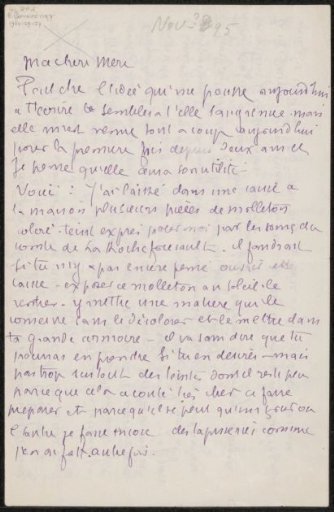 Nov. 95
Ma chere Mere
Peut etre l'idée qui me pousse aujourd'hui
a t'ecrire te semblera t'elle saugrenue. mais
elle m'est venue tout a coup aujourd'hui
pour la premiere fois depuis deux ans et
je pense qu'elle aura son utilité.
Voici : j'ai laissé dans une caisse a
la maison plusieurs pièces de molleton
coloré - teint exprès pour moi par les soins du
comte de La Rochefoucault. il faudrait
si tu n'y a pas encore pensé ouvrir cette
caisse - exposer ce molleton au soleil le
y mettre une matiere qui le
conserve sans le décolorer et le mettre dans
ta grande armoire - il va sans dire que tu
pourras en prendre si tu en desires - mais
pas trop surtout des teintes dont il reste peu
parce que cela a couté très cher a faire
preparer et parce qu'il se peut qu'un jour ou
l'autre je fasse encore des tapisseries comme
j'en ai fait autrefois.